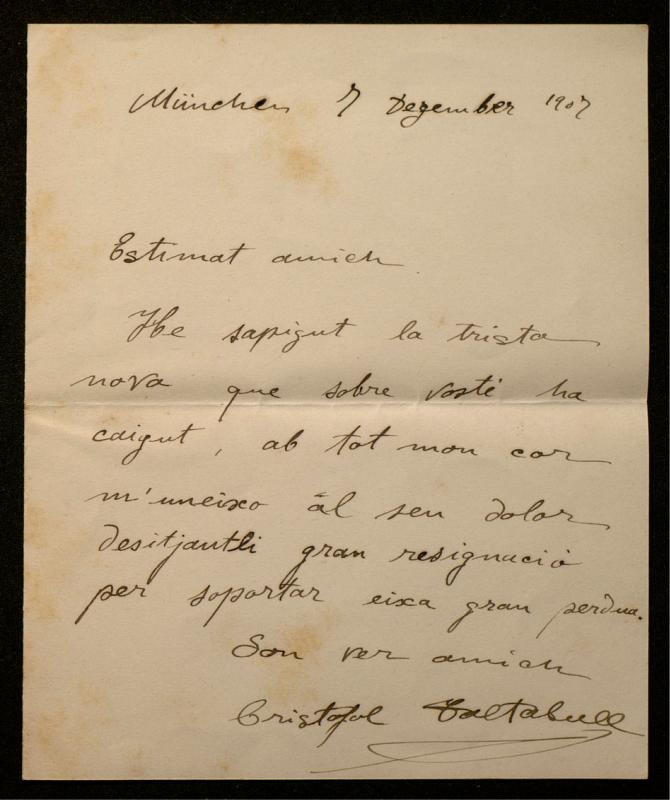 München 7 Dezember 1907
Estimat amich
He sapigut la trista
nova que sobre vosté ha
caigut, ab tot mon cor
m'uneixo al seu dolor
desitjantli gran resignació
per soportar eixa gran perdua.
Son ver amich
Cristofol Taltabull